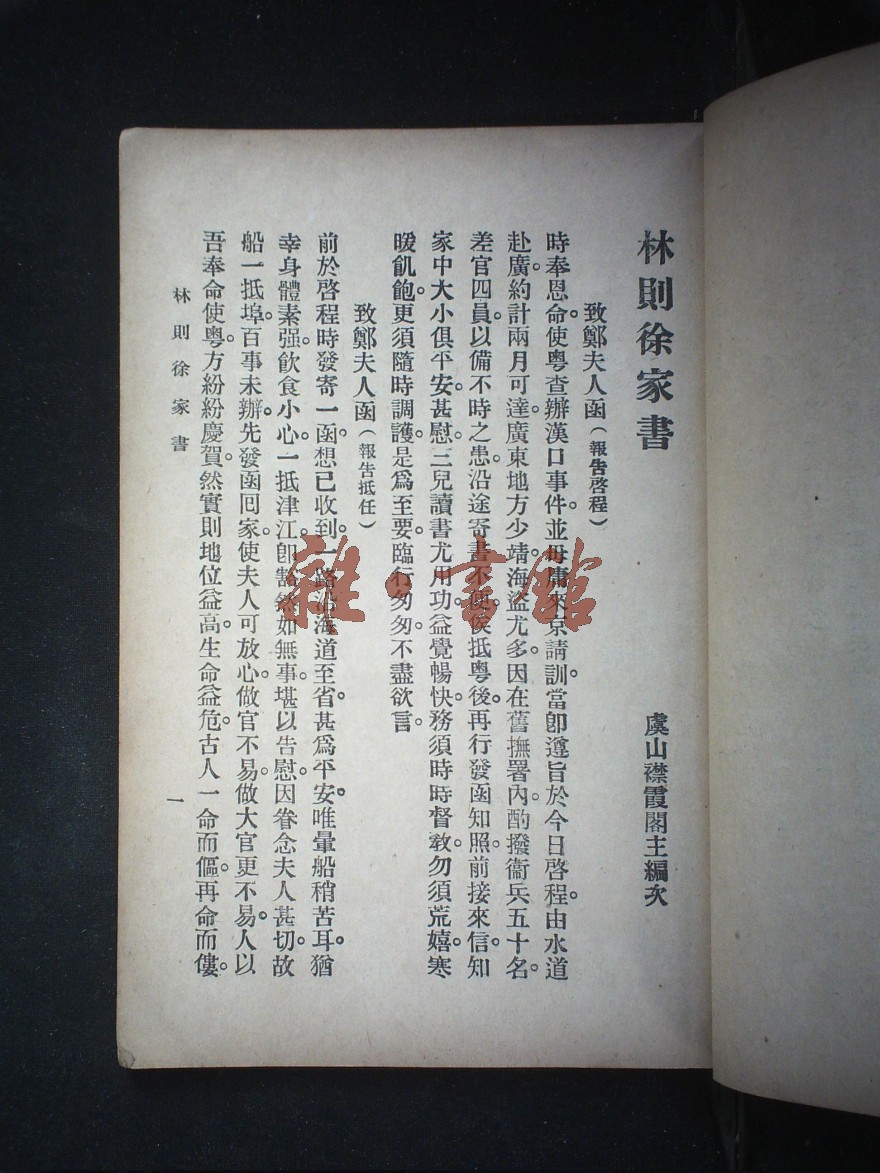 林則徐家書
虞山襟霞閣主編次
致鄭夫人函(報告啓程)
時奉恩命。使粤查辦漢口事件。並毋庸來京請訓。當卽遵旨於今日啓程。由水道
赴廣。約計兩月可達。廣東地方少靖。海盜尤多。因在舊撫署內。酌撥衞兵五十名。
差官四員。以備不時之患。沿途寄書不便。俟抵粤後。再行發函知照。前接來信。知
家中大小俱平安。甚慰。三兒讀書尤用功。益覺暢快。務須時時督敎。勿須荒嬉。寒
暖飢飽。更須隨時調護。是爲至要。臨行匆匆。不盡欲言。
致鄭夫人函(報告抵任)
前於啓程時發寄一函。想已收到。一路沿海道至省。甚爲平安。唯暈船稍苦耳。猶
幸身體素强。飮食小心。一抵津江。卽豁然如無事。堪以告慰。因眷念夫人甚切。故
船一抵埠。百事未辦。先發函囘家。使夫人可放心。做官不易。做大官更不易。人以
吾奉命使粤。方紛紛慶賀。然實則地位益高。生命益危。古人一命而傴。再命而僂。
林則徐家書
一
雜·書館